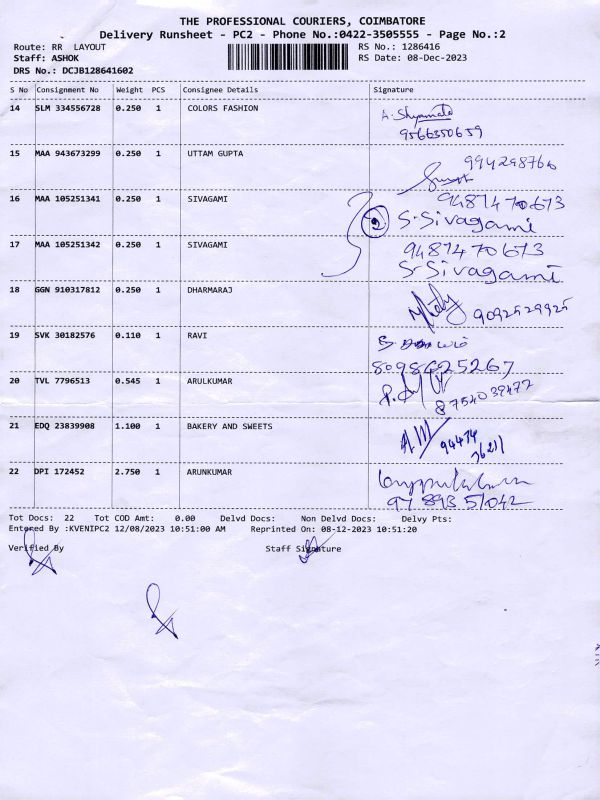 THE PROFESSIONAL COURIERS, COIMBATORE
Delivery Runsheet - PC2 - Phone No.:0422-3505555 - Page No.:2
Route: RR LAYOUT
RS No.: 1286416
Staff: ASHOK
RS Date: 08-Dec-2023
DRS No.: DCJB128641602
S No Consignment No Weight PCS Consignee Details Signature
14 SLM 334556728 0.250 1 COLORS FASHION
A. Shyamala
9566350659
15 MAA 943673299 0.250 1 UTTAM GUPTA
16 MAA 105251341 0.250 1 SIVAGAMI
9487470673
2 S. Sivagami
17 MAA 105251342 0.250 1 SIVAGAMI
9487470673
S. Sivagami
18 GGN 910317812 0.250 1 DHARMARAJ
9092529925
19 SVK 30182576 0.110 1 RAVI
8098425267
20 TVL 7796513 0.545 1 ARULKUMAR
8754039477
21 EDQ 23839908 1.100 1 BAKERY AND SWEETS
94474
22 DPI 172452 2.750 1 ARUNKUMAR
Tot Docs: 22 Tot COD Amt: 0.00 Delvd Docs: Non Delvd Docs: Delvy Pts:
Entered By :KVENIPC2 12/08/2023 10:51:00 AM Reprinted On: 08-12-2023 10:51:20
Verified By Staff Signature